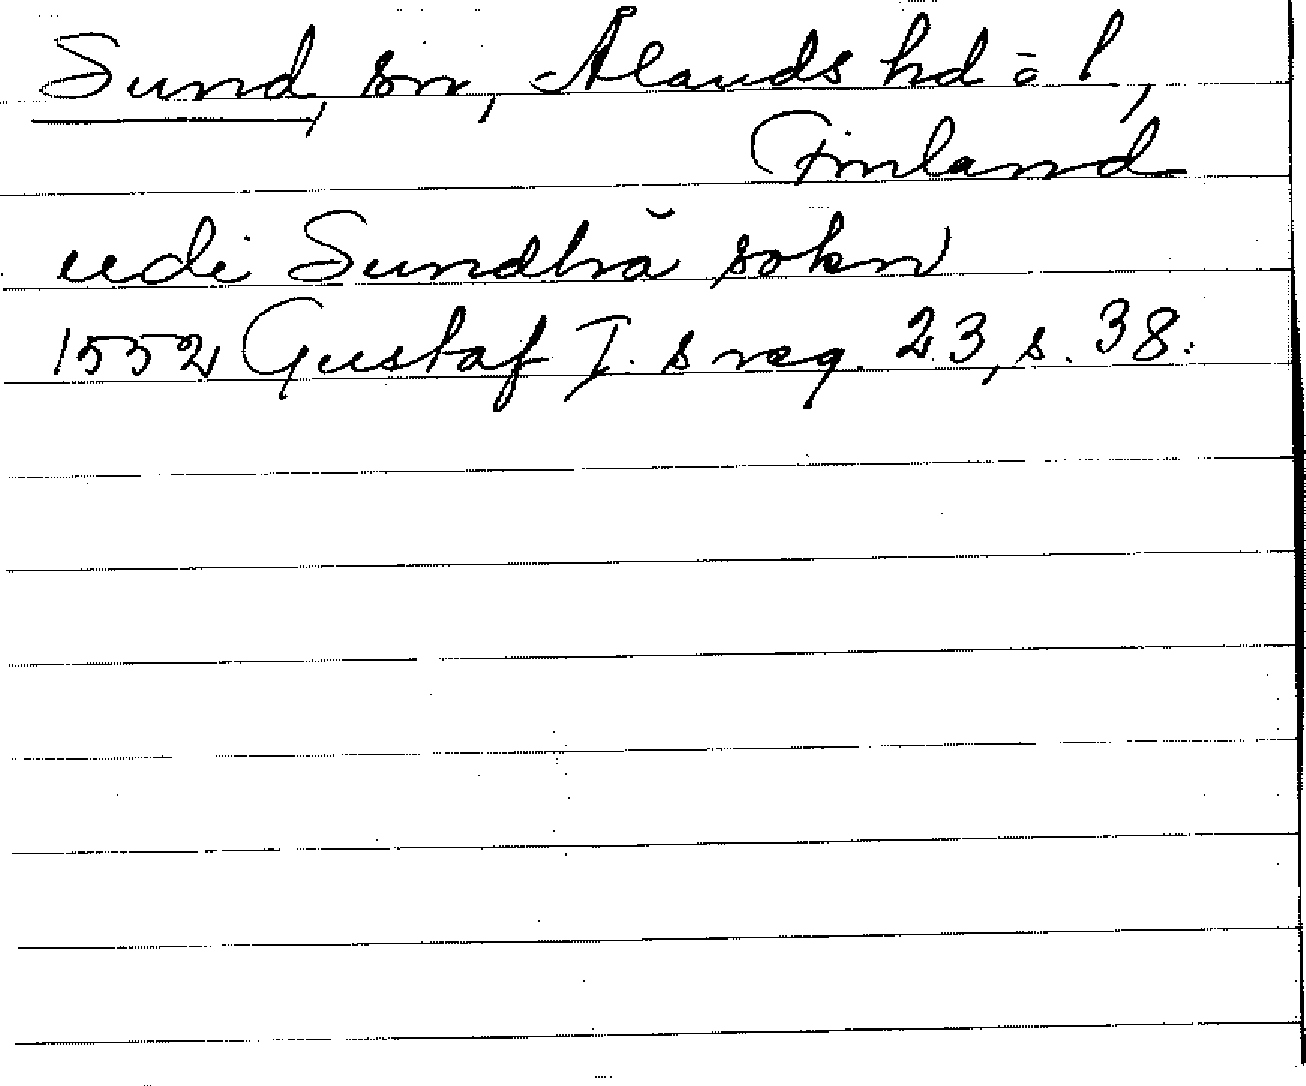 Sund, sn, Ålands hd = l,
Finland
udi Sundhă sokn
1552 Gustaf I. s reg. 23, s. 38.